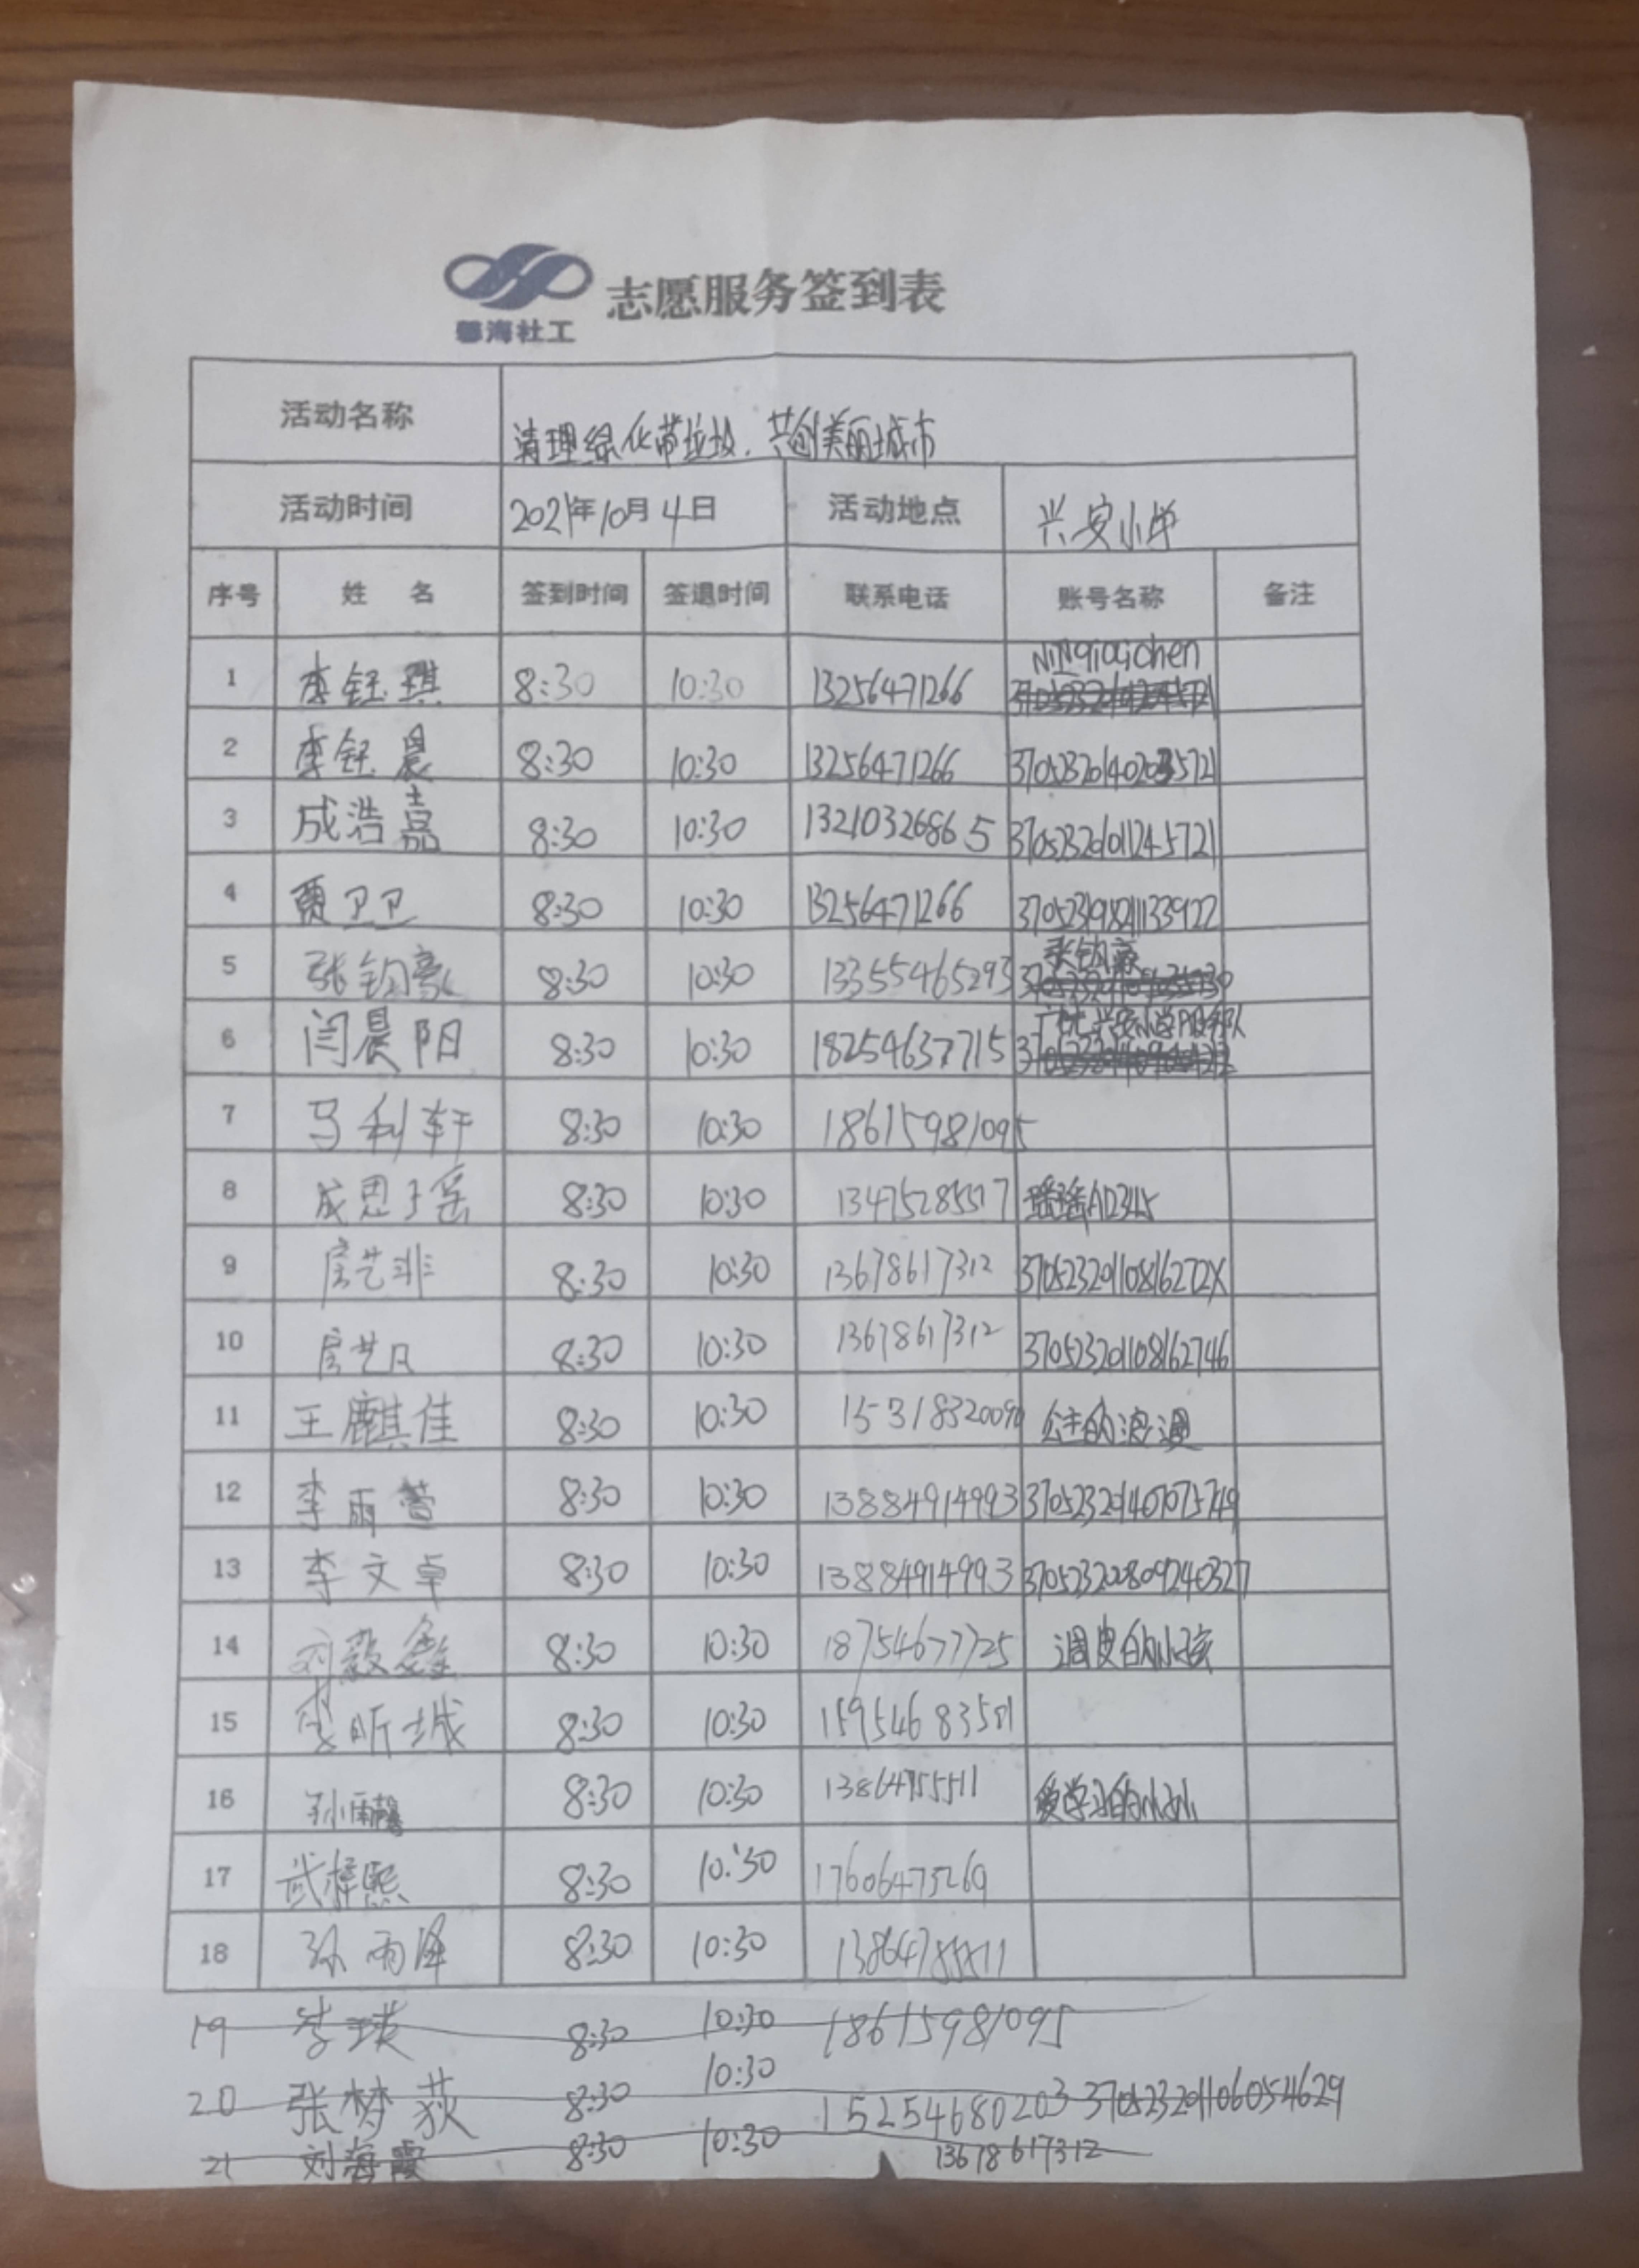 馨海社工 志愿服务签到表
活动名称 清理绿化带垃圾，共创美丽城市
活动时间 2021年10月4日 活动地点 兴安小学
序号 姓名 签到时间 签退时间 联系电话 账号名称 备注
1 李钰琪 8:30 10:30 13256471266
2 李钰晨 8:30 10:30 13256471266
3 成浩嘉 8:30 10:30 13210326865
4 贾卫卫 8:30 10:30 13256471266
5 张钧豪 8:30 10:30 13355465293 张钧豪
6 闫晨阳 8:30 10:30 18254637715
7 马利轩 8:30 10:30 18615981095
8 成思子瑶 8:30 10:30 瑶瑶A12345
9 房艺非 8:30 10:30 13678617312 37052320110816272X
10 房艺凡 8:30 10:30 13678617312 370523201108162746
11 王麒佳 8:30 10:30 公主的浪漫
12 李雨萱 8:30 10:30 13884914993 370523201407075749
13 李文卓 8:30 10:30 13884914993 370523200809240327
14 刘毅鑫 8:30 10:30 18754677725 调皮的小孩
15 昕城 8:30 10:30
16 孙雨馨 8:30 10:30 13864755511 爱学习的小孙
17 武梓熙 8:30 10:30 17606475269
18 孙雨泽 8:30 10:30
19 李瑛 8:30 10:30 18615981095
20 张梦荻 8:30 10:30 15254680203 370523201106054629
21 刘海霞 8:30 10:30 13678617312